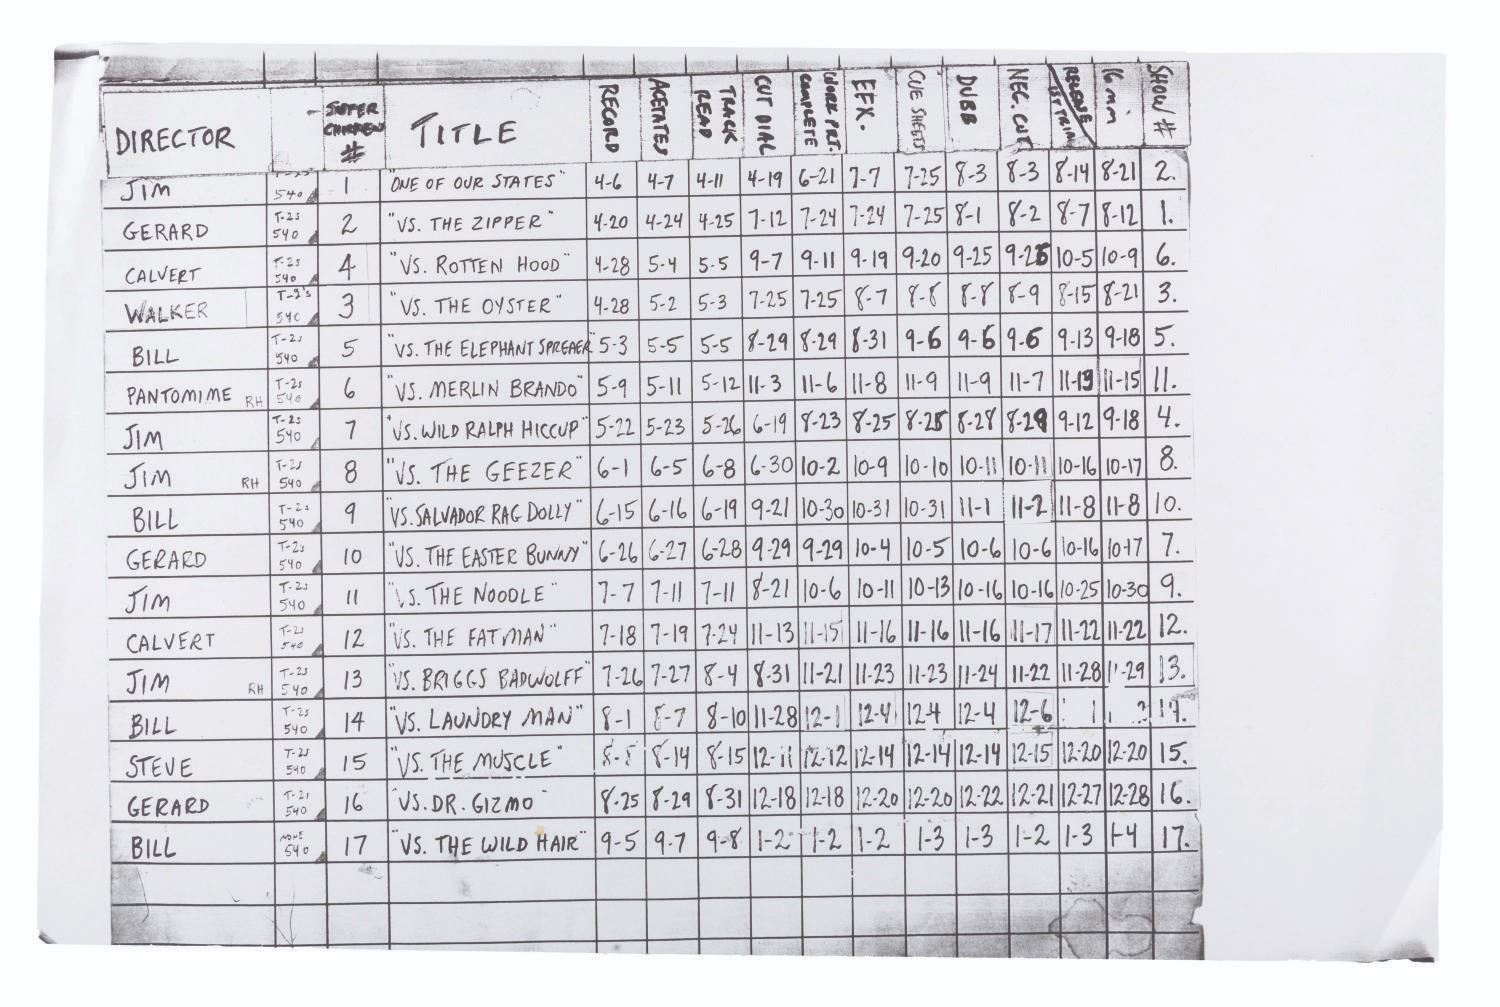 DIRECTOR SUPER CHICKEN # TITLE RECORD ACETATES TRACK READ CUT DIAL WORK PRT. COMPLETE EFX. CUE SHEETS DUBB NEG. CUT RELEASE 1ST TRIAL 16mm SHOW #
JIM 540 1 "ONE OF OUR STATES" 4-6 4-7 4-11 4-19 6-21 7-7 7-25 8-3 8-3 8-14 8-21 2.
GERARD T-2s 540 2 "VS. THE ZIPPER" 4-20 4-24 4-25 7-12 7-24 7-24 7-25 8-1 8-2 8-7 8-12 1.
CALVERT T-2s 540 4 "VS. ROTTEN HOOD" 4-28 5-4 5-5 9-7 9-11 9-19 9-20 9-25 9-26 10-5 10-9 6.
WALKER T-2's 540 3 "VS. THE OYSTER" 4-28 5-2 5-3 7-25 7-25 8-7 8-8 8-8 8-9 8-15 8-21 3.
BILL T-2s 540 5 "VS. THE ELEPHANT SPREAER" 5-3 5-5 5-5 8-29 8-29 8-31 9-6 9-6 9-6 9-13 9-18 5.
PANTOMIME RH T-2s 540 6 "VS. MERLIN BRANDO" 5-9 5-11 5-12 11-3 11-6 11-8 11-9 11-9 11-7 11-13 11-15 11.
JIM T-2s 540 7 "VS. WILD RALPH HICCUP" 5-22 5-23 5-26 6-19 8-23 8-25 8-28 8-28 8-29 9-12 9-18 4.
JIM RH T-2s 540 8 "VS. THE GEEZER" 6-1 6-5 6-8 6-30 10-2 10-9 10-10 10-11 10-11 10-16 10-17 8.
BILL T-2s 540 9 "VS. SALVADOR RAG DOLLY" 6-15 6-16 6-19 9-21 10-30 10-31 10-31 11-1 11-2 11-8 11-8 10.
GERARD T-2s 540 10 "VS. THE EASTER BUNNY" 6-26 6-27 6-28 9-29 9-29 10-4 10-5 10-6 10-6 10-16 10-17 7.
JIM T-2s 540 11 "VS. THE NOODLE" 7-7 7-11 7-11 8-21 10-6 10-11 10-13 10-16 10-16 10-25 10-30 9.
CALVERT T-2s 540 12 "VS. THE FATMAN" 7-18 7-19 7-24 11-13 11-15 11-16 11-16 11-16 11-17 11-22 11-22 12.
JIM RH T-2s 540 13 "VS. BRIGGS BADWOLFF" 7-26 7-27 8-4 8-31 11-21 11-23 11-23 11-24 11-22 11-28 11-29 13.
BILL T-2s 540 14 "VS. LAUNDRY MAN" 8-1 8-7 8-10 11-28 12-1 12-4 12-4 12-4 12-6 14.
STEVE T-2s 540 15 "VS. THE MUSCLE" 8-8 8-14 8-15 12-11 12-12 12-14 12-14 12-14 12-15 12-20 12-20 15.
GERARD T-2s 540 16 "VS. DR. GIZMO" 8-25 8-29 8-31 12-18 12-18 12-20 12-20 12-22 12-21 12-27 12-28 16.
BILL NONE 540 17 "VS. THE WILD HAIR" 9-5 9-7 9-8 1-2 1-2 1-2 1-3 1-3 1-2 1-3 1-4 17.